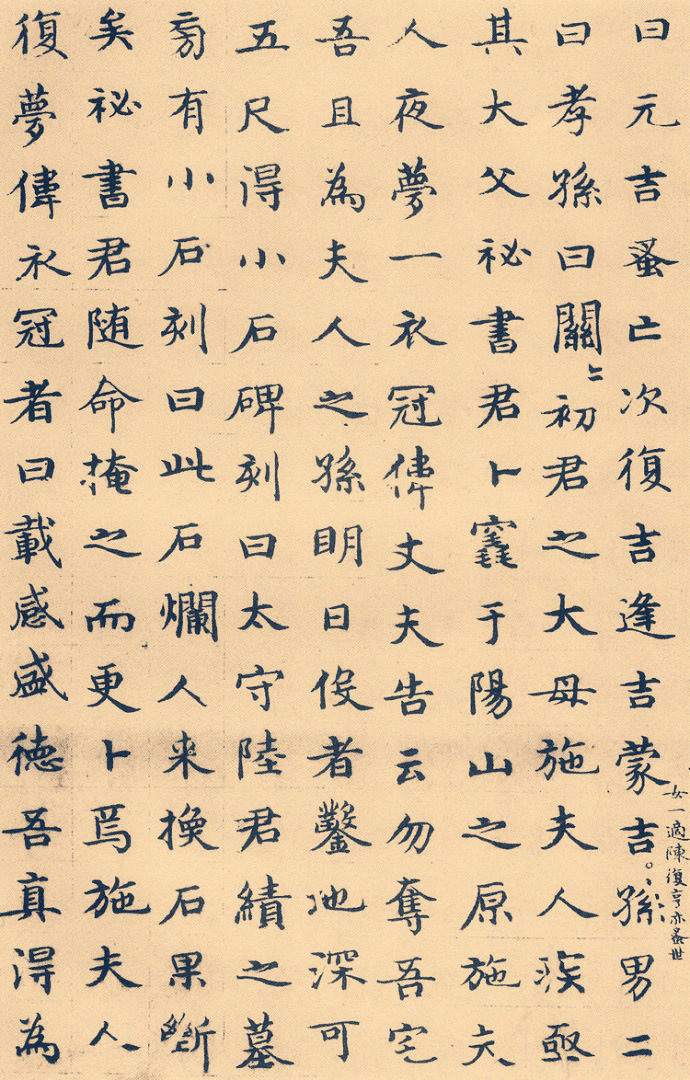 曰元吉蚤亡次復吉逢吉蒙吉孫男二
女一適陳復亨亦蚤世
曰孝孫曰關〻初君之大母施夫人疾亟
其大父祕書君卜竁于陽山之原施夫
人夜夢一衣冠偉丈夫告云勿奪吾宅
吾且為夫人之孫明日役者鑿地深可
五尺得小石碑刻曰太守陸君績之墓
旁有小石刻曰此石爛人来換石果斷
矣祕書君随命掩之而更卜焉施夫人
復夢偉衣冠者曰載感盛德吾真得為